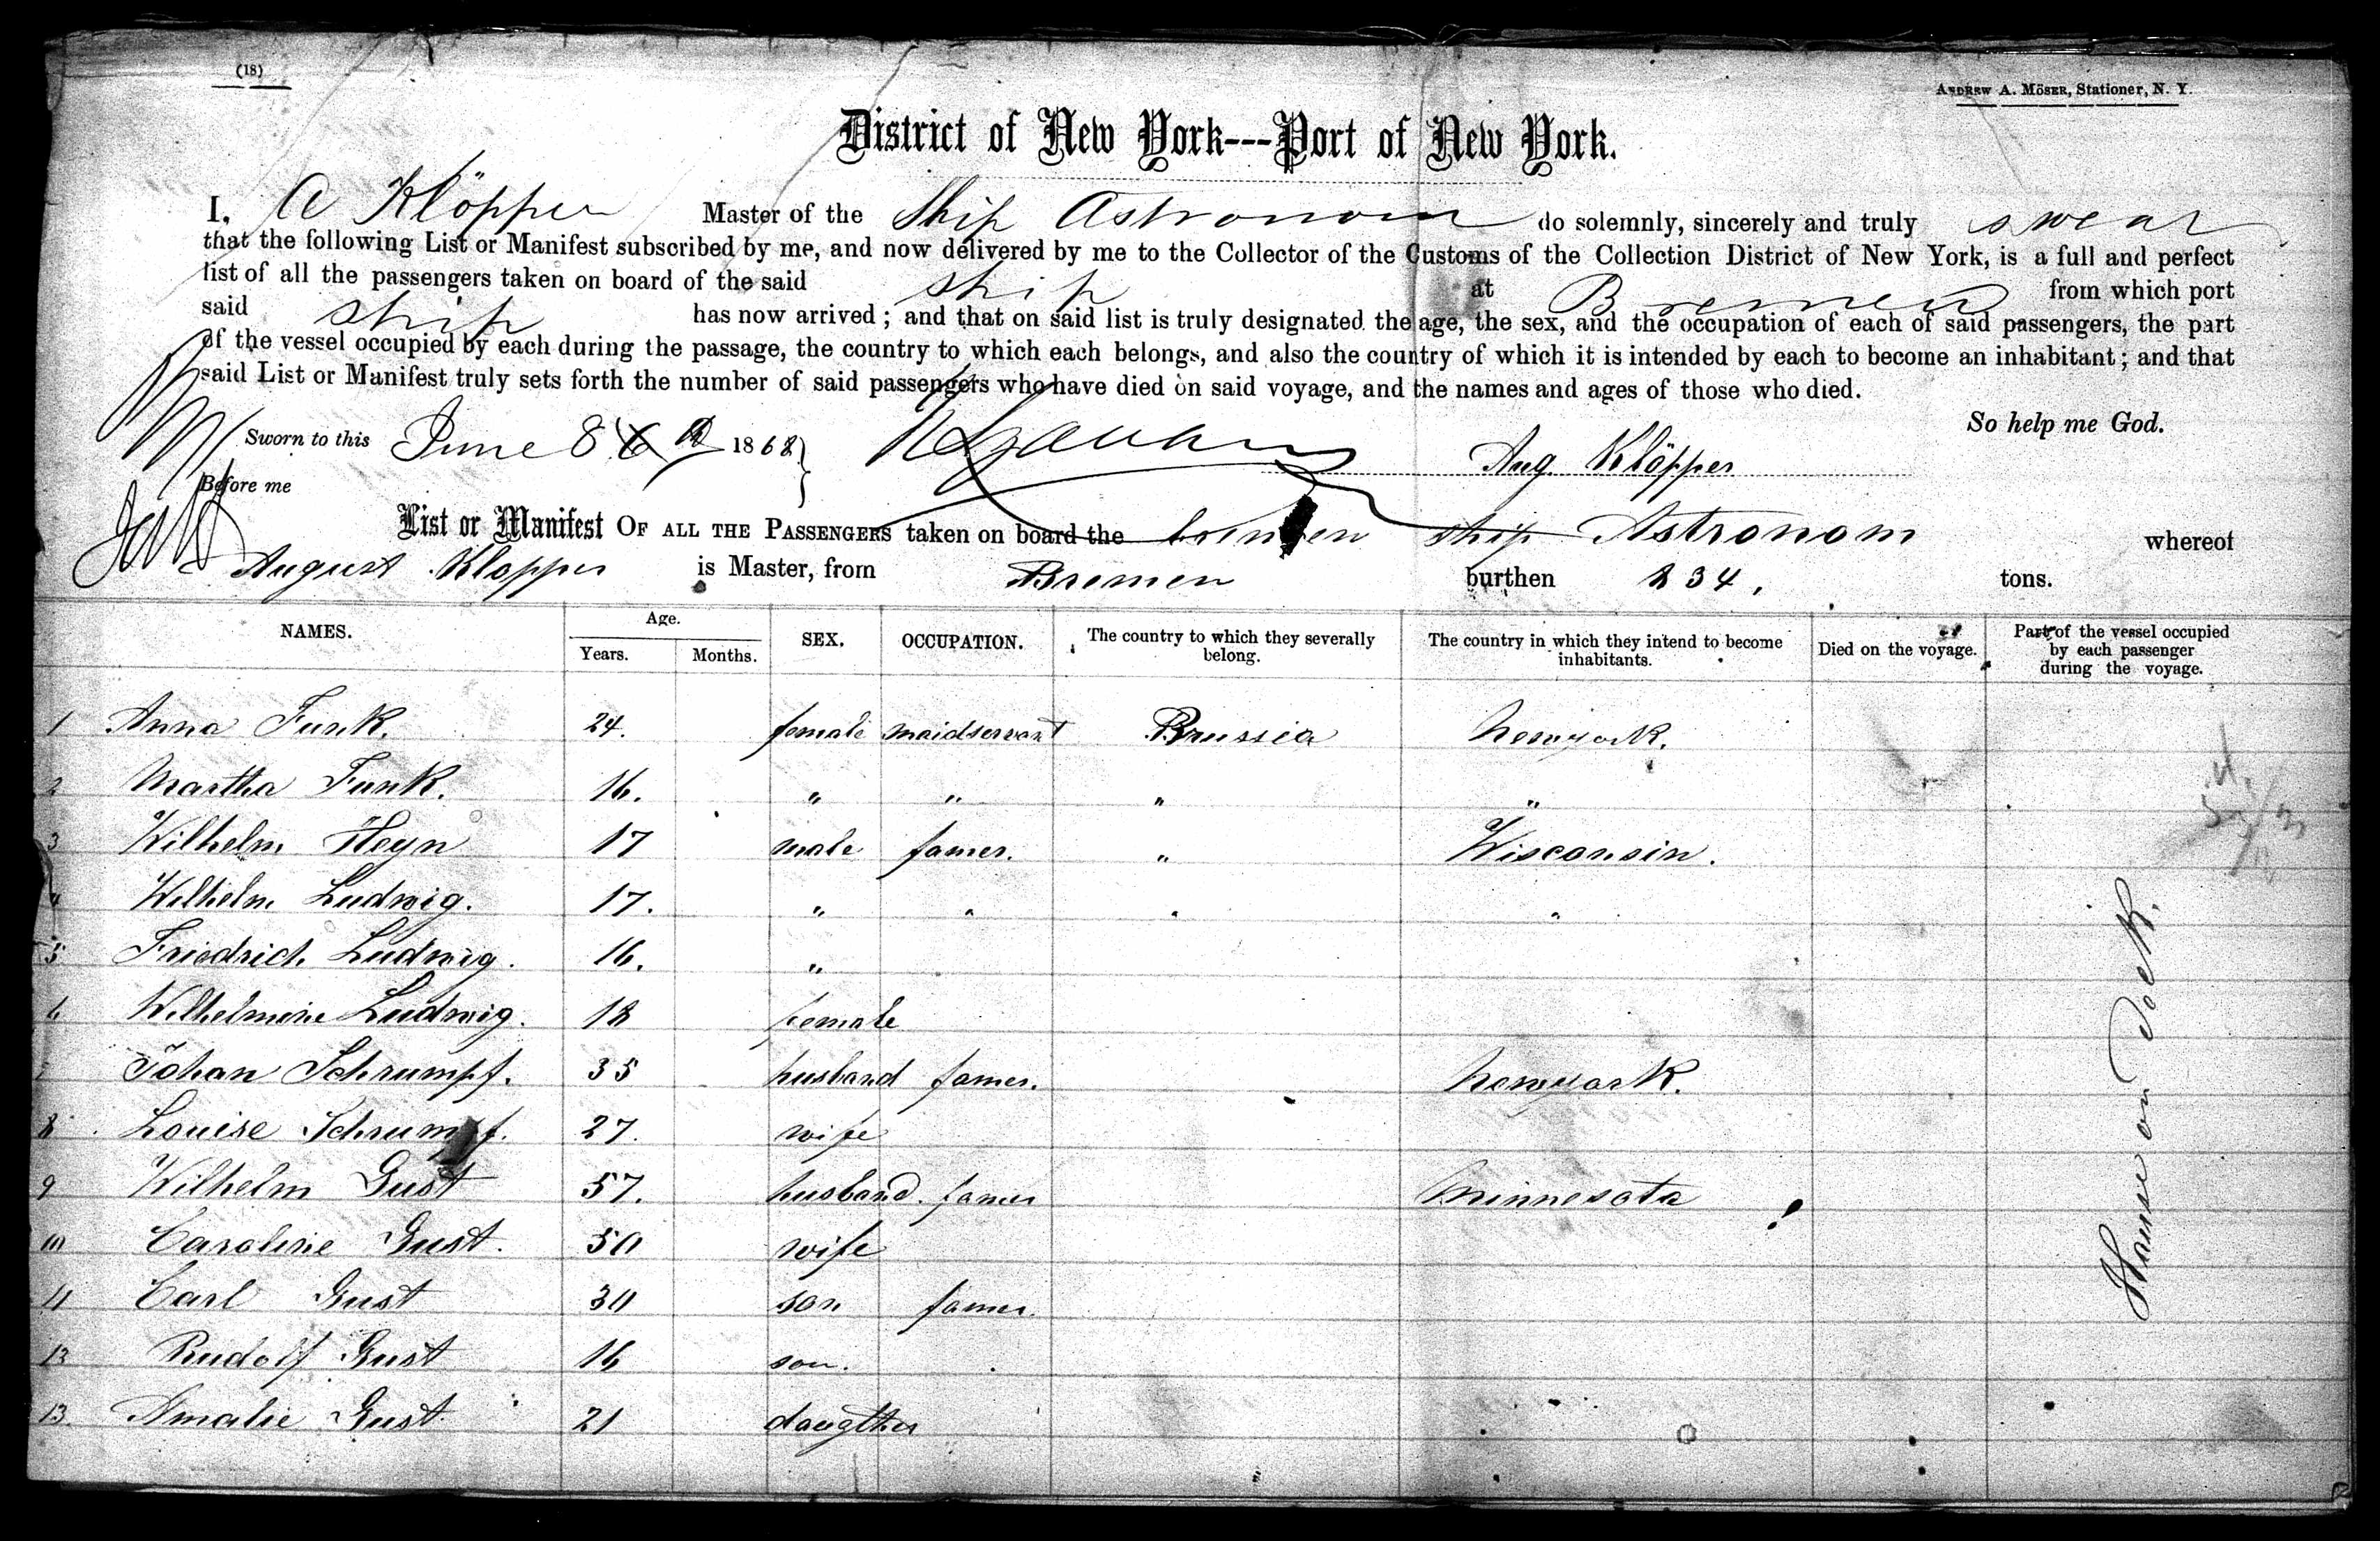 (18)
ANDREW A. MÖSER, Stationer, N. Y.
District of New York---Port of New York.
I, A Klöpper Master of the Ship Astronom do solemnly, sincerely and truly swear
that the following List or Manifest subscribed by me, and now delivered by me to the Collector of the Customs of the Collection District of New York, is a full and perfect
list of all the passengers taken on board of the said ship at Bremen from which port
said ship has now arrived; and that on said list is truly designated the age, the sex, and the occupation of each of said passengers, the part
of the vessel occupied by each during the passage, the country to which each belongs, and also the country of which it is intended by each to become an inhabitant; and that
said List or Manifest truly sets forth the number of said passengers who have died on said voyage, and the names and ages of those who died.
So help me God.
Sworn to this June 8 1868
Aug Klöpper
Before me
List or Manifest OF ALL THE PASSENGERS taken on board the bremen ship Astronom whereof
August Klopper is Master, from Bremen burthen 834, tons.
NAMES. Age. Years. Months. SEX. OCCUPATION. The country to which they severally belong. The country in which they intend to become inhabitants. Died on the voyage. Part of the vessel occupied by each passenger during the voyage.
1 Anna Funk. 24. female maidservant Prussia newyork.
2 Martha Funk. 16. " " " "
3 Wilhelm Heyn 17 male famer. " Wisconsin.
4 Wilhelm Ludwig. 17. " " " "
5 Friedrich Ludwig. 16. "
6 Wilhelmine Ludwig. 18 female
7 Johan Schrumpf. 35 husband famer. newyork.
8 Louise Schrumpf. 27. wife
9 Wilhelm Gust 57. husband. famer Minnesota
10 Caroline Gust. 50 wife
11 Carl Gust 30 son famer.
12 Rudolf Gust 16 son.
13 Amalie Gust. 21 daugther
House on deck.